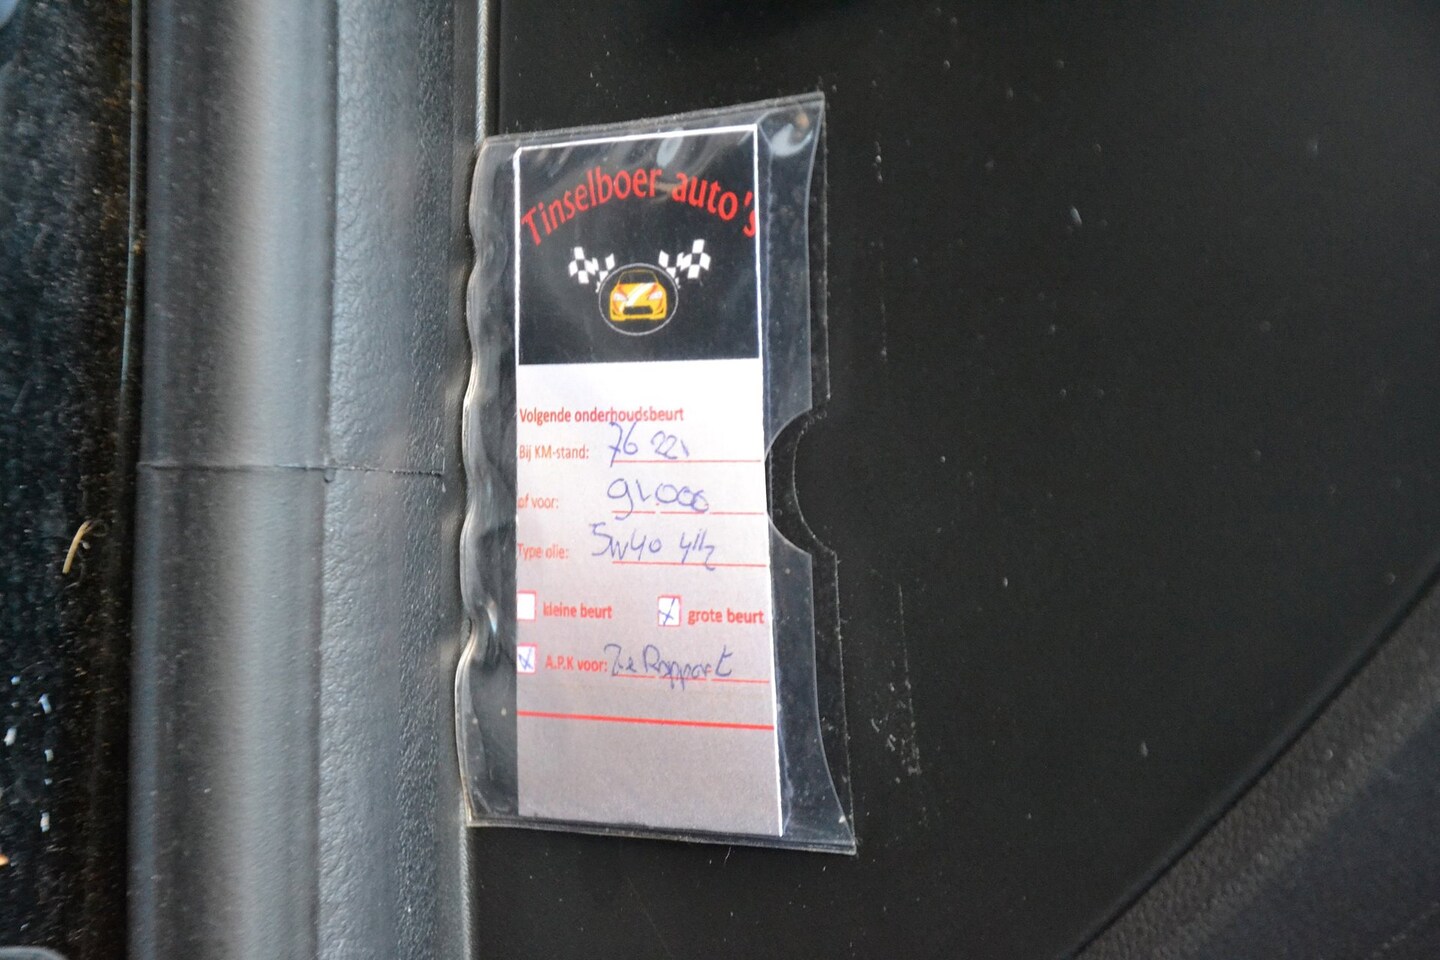 Tinselboer auto's
Volgende onderhoudsbeurt
Bij KM-stand: 76 221
of voor: 91.000
Type olie: 5w40
kleine beurt grote beurt
A.P.K voor: Zie Rapport